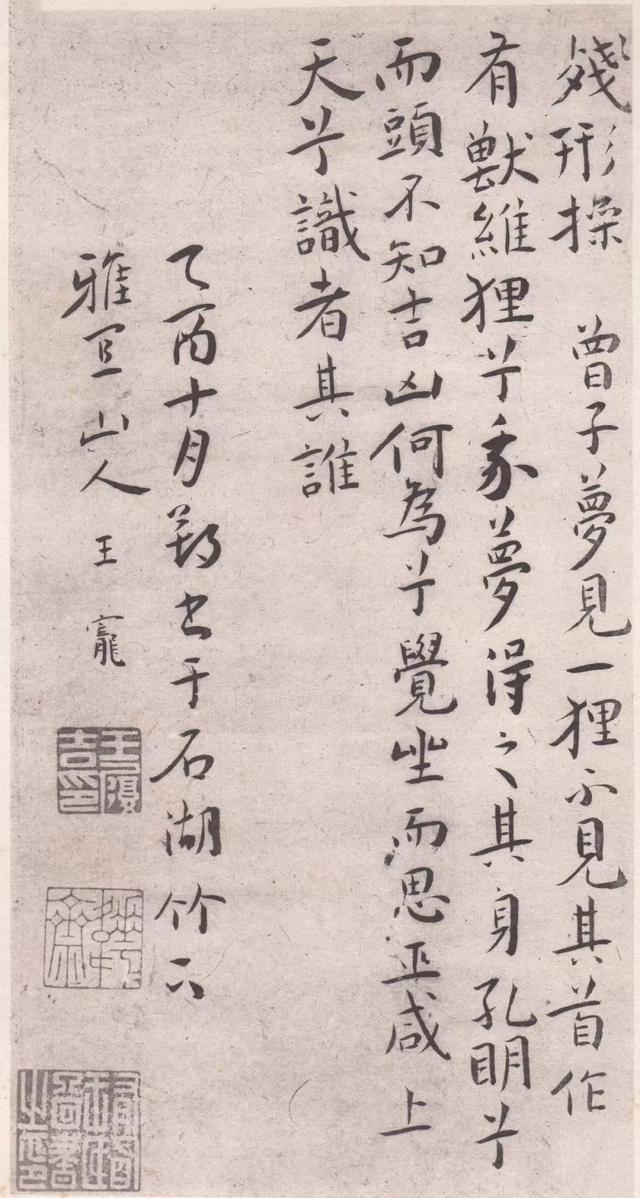 殘形操 曾子夢見一狸不見其首作
有獸維狸兮我夢得之其身孔明兮
而頭不知吉凶何為兮覺坐而思巫咸上
天兮識者其誰
乙酉十月朔書于石湖竹下
雅宜山人王寵